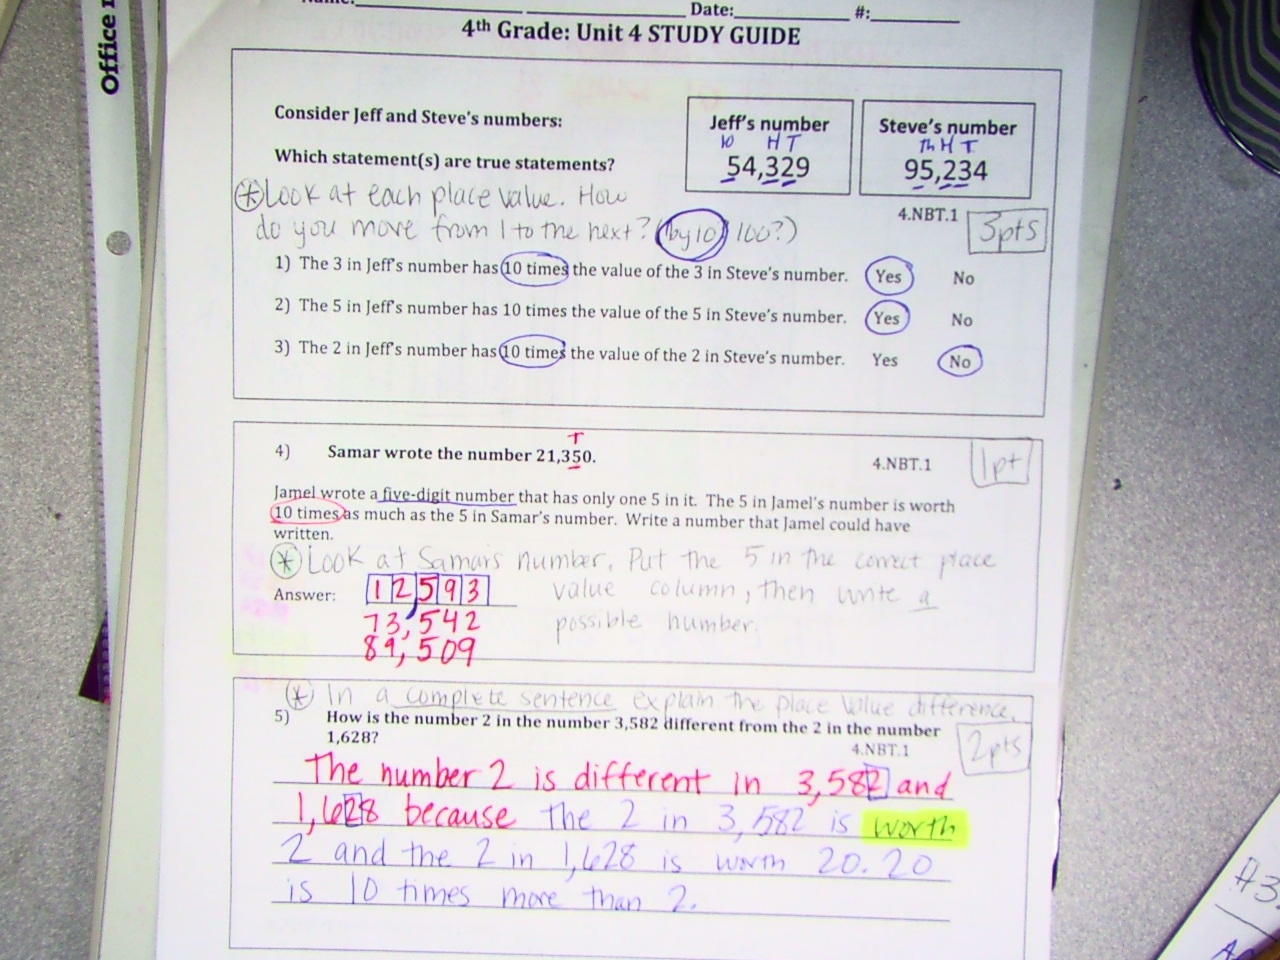 Office
Date:
#:
4th Grade: Unit 4 STUDY GUIDE
Consider Jeff and Steve's numbers:
Which statement(s) are true statements?
Jeff's number
10 H T
54,329
Steve's number
Th H T
95,234
4.NBT.1
3pts
* Look at each place value. How
do you move from 1 to the next? (by 10, 100?)
1) The 3 in Jeff's number has 10 times the value of the 3 in Steve's number. Yes No
2) The 5 in Jeff's number has 10 times the value of the 5 in Steve's number. Yes No
3) The 2 in Jeff's number has 10 times the value of the 2 in Steve's number. Yes No
T
4) Samar wrote the number 21,350.
4.NBT.1
1pt
Jamel wrote a five-digit number that has only one 5 in it. The 5 in Jamel's number is worth
10 times as much as the 5 in Samar's number. Write a number that Jamel could have
written.
* Look at Samar's number. Put the 5 in the correct place
value column, then write a
possible number.
Answer: 12,593
73,542
89,509
* In a complete sentence explain the place value difference.
5) How is the number 2 in the number 3,582 different from the 2 in the number
1,628?
4.NBT.1
2pts
The number 2 is different in 3,582 and
1,628 because the 2 in 3,582 is worth
2 and the 2 in 1,628 is worth 20. 20
is 10 times more than 2.